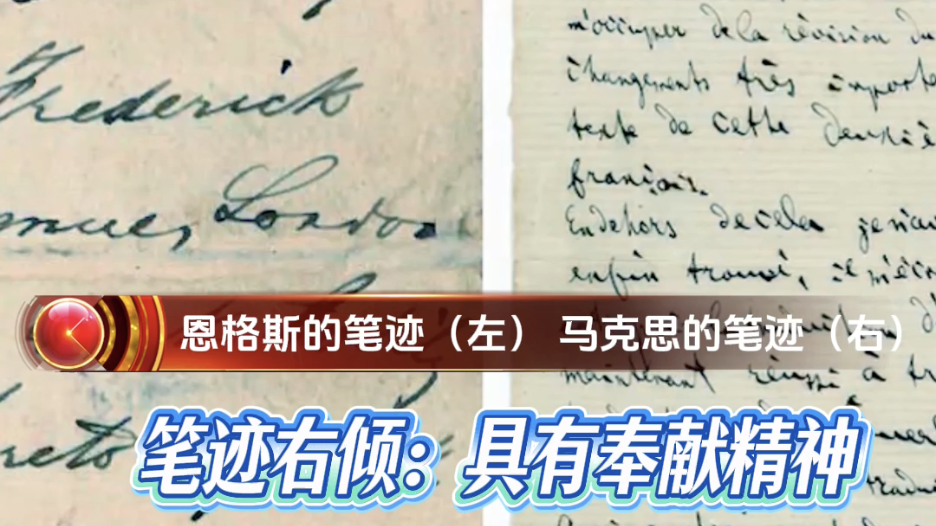 Frederick
London
m'occuper de la révision du
changements très importa
texte de cette deuxiè
français.
En dehors de cela je n'ai
enfin trouvé, il m'é
恩格斯的笔迹（左） 马克思的笔迹（右）
maintenant réussi à tr
笔迹右倾：具有奉献精神